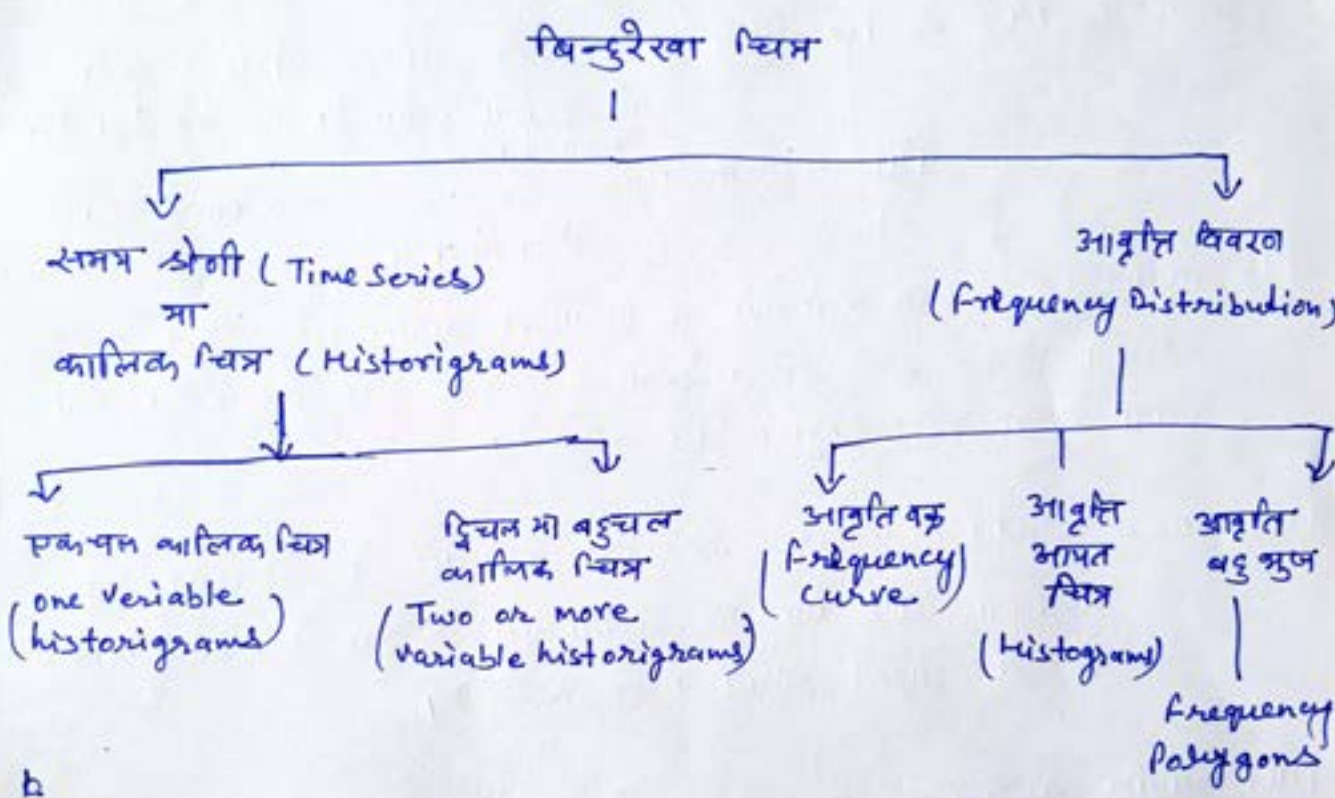 बिन्दुरेखा चित्र
समय श्रेणी (Time Series)
या
कालिक चित्र (Historigrams)
आवृत्ति विवरण
(Frequency Distribution)
एकचल कालिक चित्र
(one veriable
historigrams)
द्विचल या बहुचल
कालिक चित्र
(Two or more
variable historigrams)
आवृति वक्र
(Frequency
curve)
आवृत्ति
आयत
चित्र
(Histograms)
आवृति
बहु भुज
Frequency
Polygons